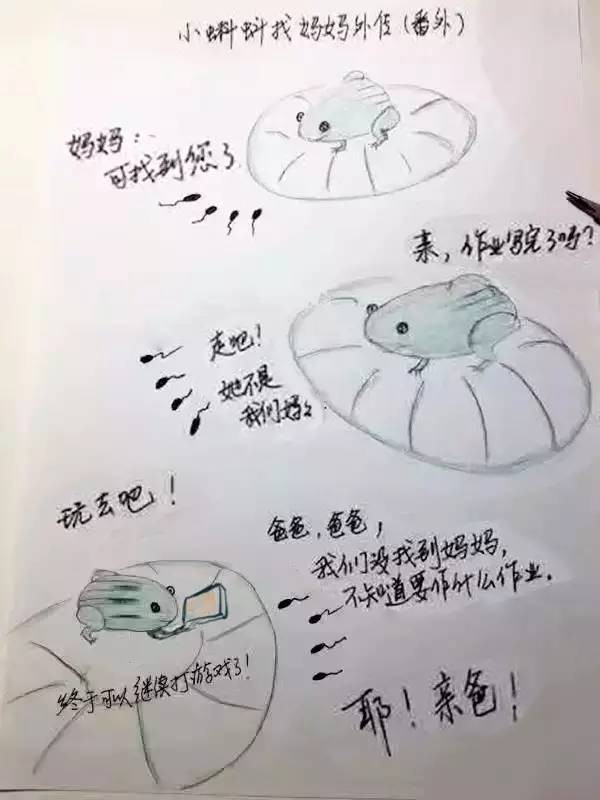 小蝌蚪找妈妈外传(番外)
妈妈:
可找到您了
来,作业写完了吗?
走吧!
她不是
我们妈妈
玩去吧!
爸爸,爸爸,
我们没找到妈妈,
不知道要作什么作业。
终于可以继续打游戏了!
耶!亲爸!